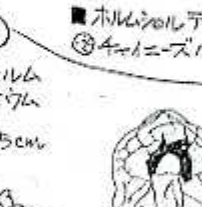 ■ホルムショルデ
③チャイニーズハ
ルム
ウム
5cm